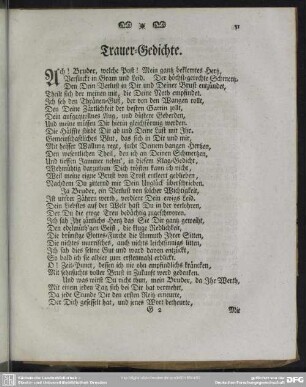 51
Trauer-Gedichte.
Ach! Bruder, welche Post! Mein ganz beklemtes Herz,
Versinckt in Gram und Leid. Der höchst-gerechte Schmerz,
Den Dein Verlust in Dir und Deiner Brust entzündet,
Theilt sich der meinen mit, die Deine Noth empfindet.
Ich seh den Thränen-Guß, der von den Wangen rollt,
Den Deine Zärtlichkeit der besten Gattin zollt,
Dein aufgequollnes Aug, und düstere Geberden,
Und meine müssen Dir hierin gleichförmig werden.
Die Hälffte stirbt Dir ab und Deine Lust mit Ihr.
Gemeinschaftliches Blut, das sich in Dir und mir,
Mit heisser Wallung regt, sucht Deinem bangen Herzen,
Den wesentlichen Theil, den ich an Deinen Schmerzen,
Und tiefsten Jammer nehm', in diesem Klag-Gedicht,
Wehmüthig darzuthun Dich trösten kann ich nicht,
Weil meine eigne Brust von Trost entleert geblieben,
Nachdem Du zitternd mir Dein Unglück überschrieben.
Ja Bruder, ein Verlust von solcher Wichtigkeit,
Ist unsrer Zähren werth, verdient Dein ewigs Leid.
Dein Liebstes auf der Welt hast Du in der verlohren,
Der Du die ewge Treu bedächtig zugeschworen.
Ich sah Ihr zärtlich Herz das Sie Dir ganz geweiht,
Den edelmüth'gen Geist, die kluge Redlichkeit,
Die brünstge Gottes-Furcht die Anmuth Ihrer Sitten,
Die nichts murrisches, auch nichts leichtsinnigs litten,
Ich sah dis süsse Gut und ward daran entzückt,
So bald ich sie alhier zum erstenmahl erblickt.
O! Zeit-Punct, dessen ich nie ohn empfindlichs kräncken,
Mit sehnsuchts voller Brust in Zukunft werd gedencken,
Und was wirst Du nicht thun, mein Bruder, da Ihr Werth,
Mit einem jeden Tag sich bei Dir hat vermehrt,
Da jede Stunde Dir den ersten Reitz erneurte,
Der Dich gefesselt hat, und jenes Wort betheurte,
G 2
Mit